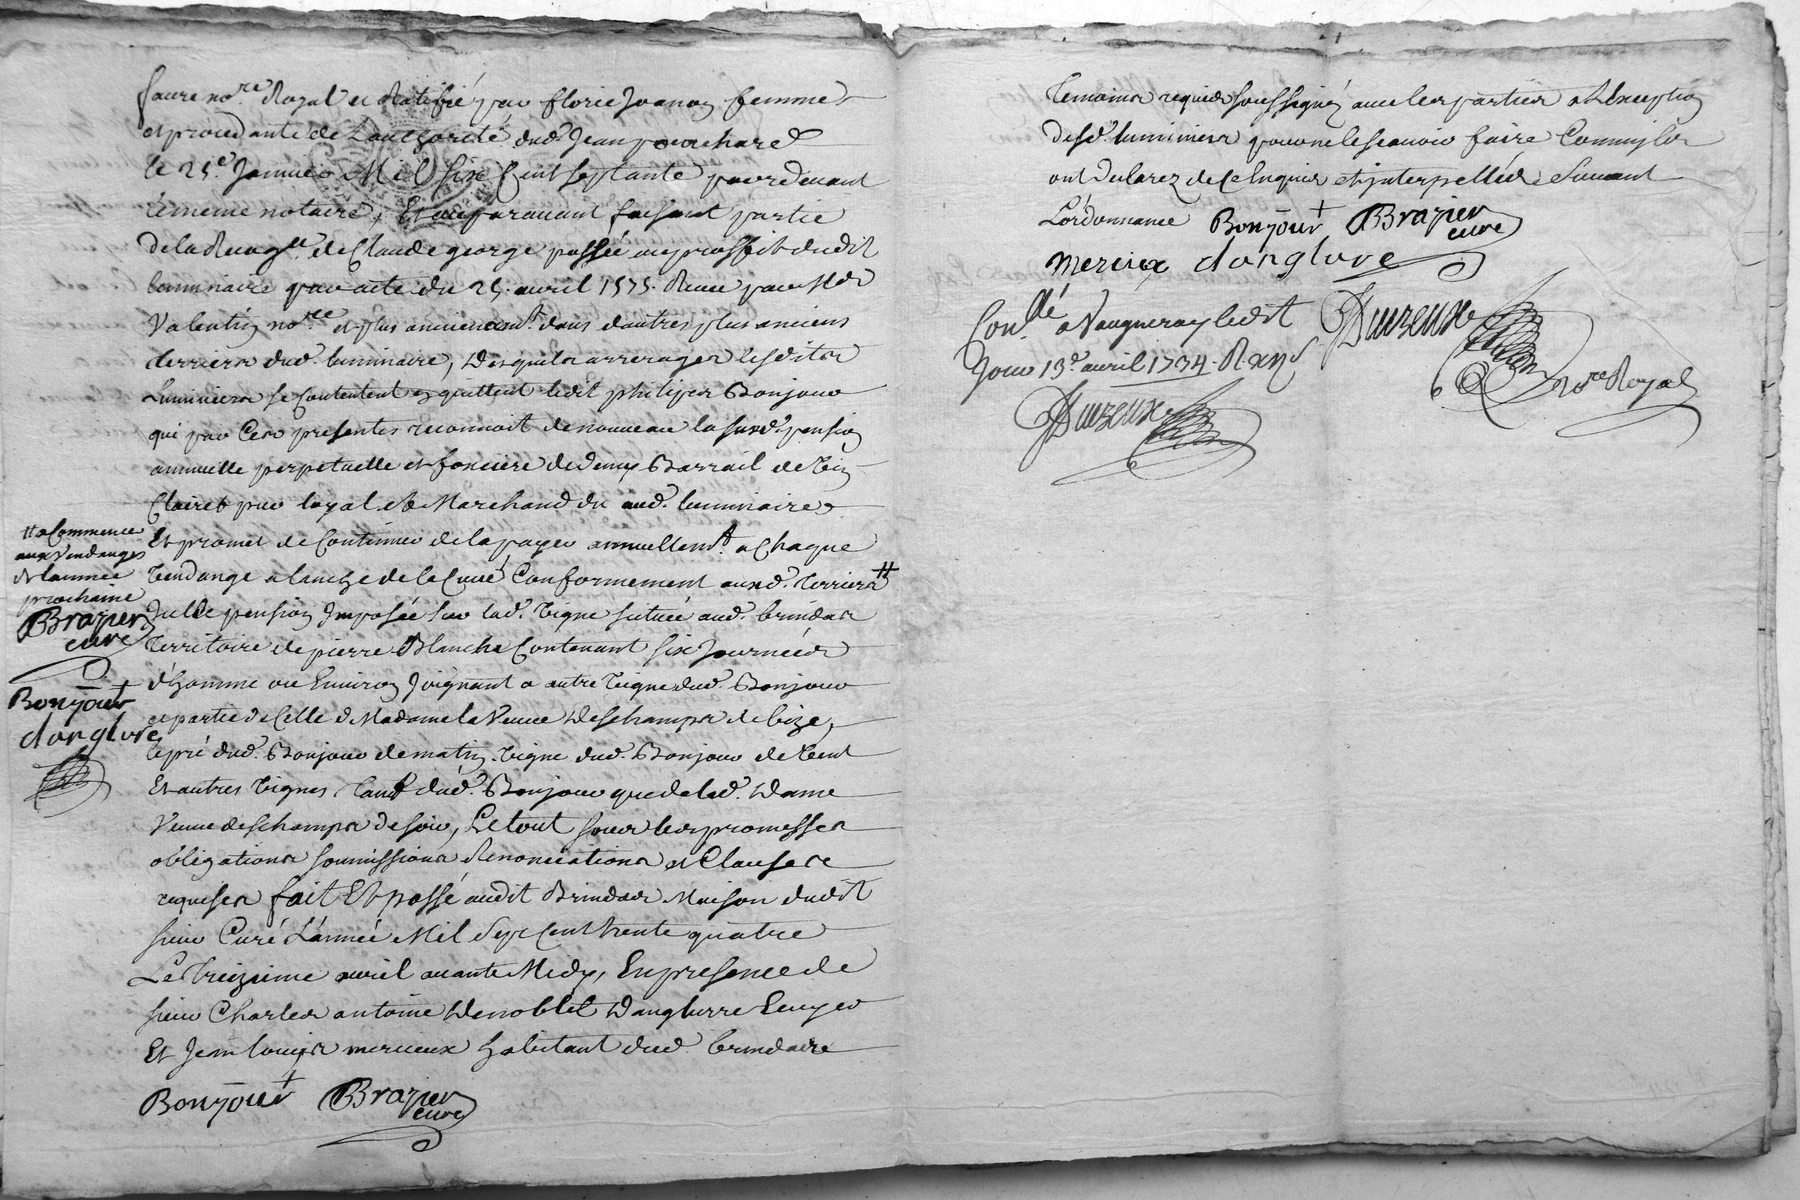 faure no.re Royal et Ratifié par florie Joanon femme
et procedante de Lauthorité dud. Jean ponchard
le 25.e Janvier Mil Six Cent septante pardevant
le meme notaire, Et auparavant faisant partie
De la Recog.ce de Claude george passée au proffit dudit
luminaire par acte du 25. avril 1575. Receu par M.e
Valentin no.re et plus anciennem.t dans dautres plus anciens
terriers dud. luminaire, Desquels arrerages lesdits
Luminiers se Contentent et quittent ledit philipes Bonjour
qui par Ces presentes reconnoit de nouveau la susd. pension
annuelle perpetuelle et fonciere de demy Barrail de vin
Clairet pur loyal et Marchand du aud. luminaire
Et promet de Continuer de la payer annuellem.t a Chaque
Vendange a lanche de la Cuve Conformement auxd. terriers #
# a Commencer
aux Vendanges
de lannée
prochaine
Brazier
curé
Bonjour
danglure
Jcelle pension Jmposée sur lad. vigne scituée aud. brindas
territoire de pierre Blanche Contenant six Journées
d'homme ou Environ Joignant a autre vigne dud. Bonjour
et partie de Celle de Madame la Veuve Deschamps de bize,
le pré dud. Bonjour de matin. vigne dud. Bonjour de vent
Et autres vignes tant dud. Bonjour que de lad. Dame
Veuve deschamps de soir, Le tout sous les promesses
obligations soumissions Renonciations et Clauses
requises fait Et passé audit Brindas Maison dudit
sieur Curé L'année Mil Sept Cent trente quatre
Le treizieme avril avant Midy, En presence de
sieur Charles antoine Denoblet Danglurre Ecuyer
Et Jean louis mercieux habitant dud. brindas
Bonjour Brazier
curé
Temoins requis soussignés avec les parties a Lexception
desd. luminiers pour ne le scavoir faire Comme ils
ont declarez de Ce Enquis et interpellés Suivant
L'ordonnance Bonjour Brazier
curé
merciex danglure
Con.llé a Vaugneray ledit
Jour 13.e avril 1734. R. x
no.re Royal